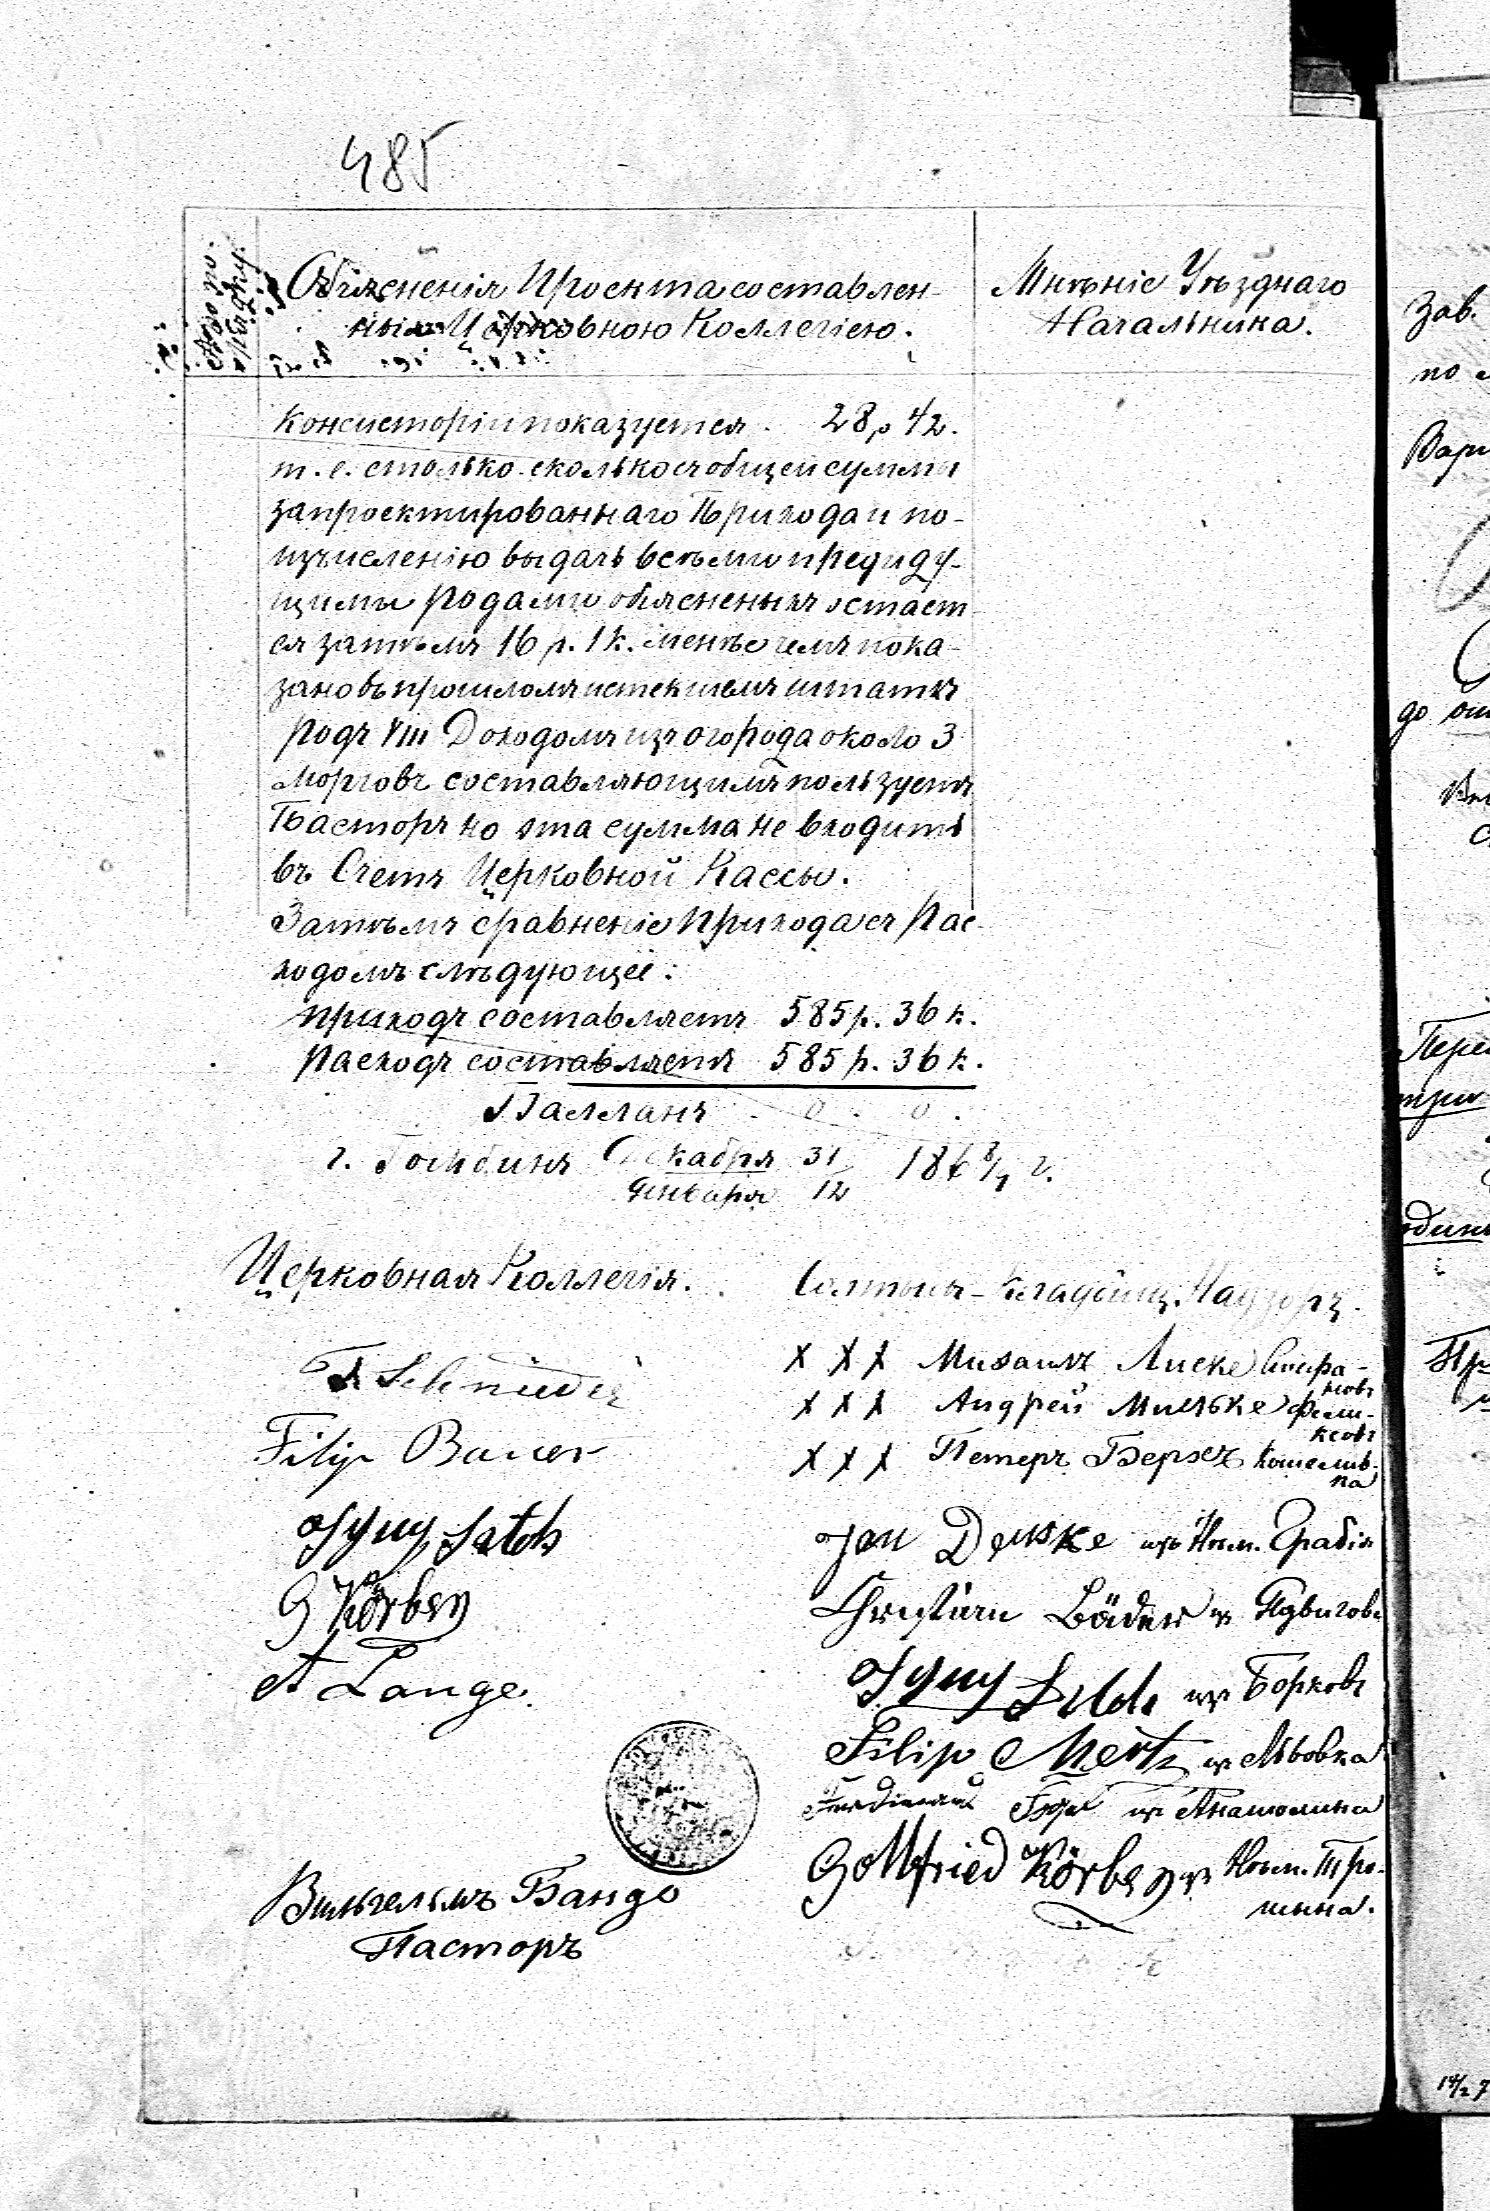 485
№ по порядку.
Обьясненія Проекта составлен-
ныя Церковною Коллегіею.
Мнѣніе Уѣзднаго
Начальника.
Консисторіи показуется . 28 р 42.
т. е. столько сколько съ общей суммы
запроектированнаго Прихода и по-
изчисленію выдачъ всѣми предиду-
щими родами обясненныхъ остает
ся затѣмъ 16 р. 1 к. менѣе чемъ пока-
зано въ прошломъ истекшемъ штатѣ
родъ VIII Доходомъ изъ огорода около 3
морговъ составляющимъ пользуетя
Пасторъ но эта сумма не входитъ
въ Счетъ Церковной Кассы.
Затѣмъ сравненіе Прихода съ Рас-
ходомъ слѣдующее:
Приходъ составляетъ 585 р. 36 к.
Расходъ составляетъ 585 р. 36 к.
Балланъ . 0 . 0 .
г. Гомбинъ Декабря 31 186 8/9 г.
Января 12
Церковная Коллегія.
Schnieder
Filip Bauer
G Körber
A Lange.
Вильгельмъ Бандо
Пасторъ
X X X Михаилъ Лиске
X X X Андрей Мильке
X X X Петеръ Берхъ
Jan Demske изъ
Christian Bäder изъ
изъ Борковъ
Filip Mertz изъ Львовка
Ferdinand изъ Анатолина
Gottfried Körber изъ Ново. Тро-
шина.
Зав.
по
до
14/2 7